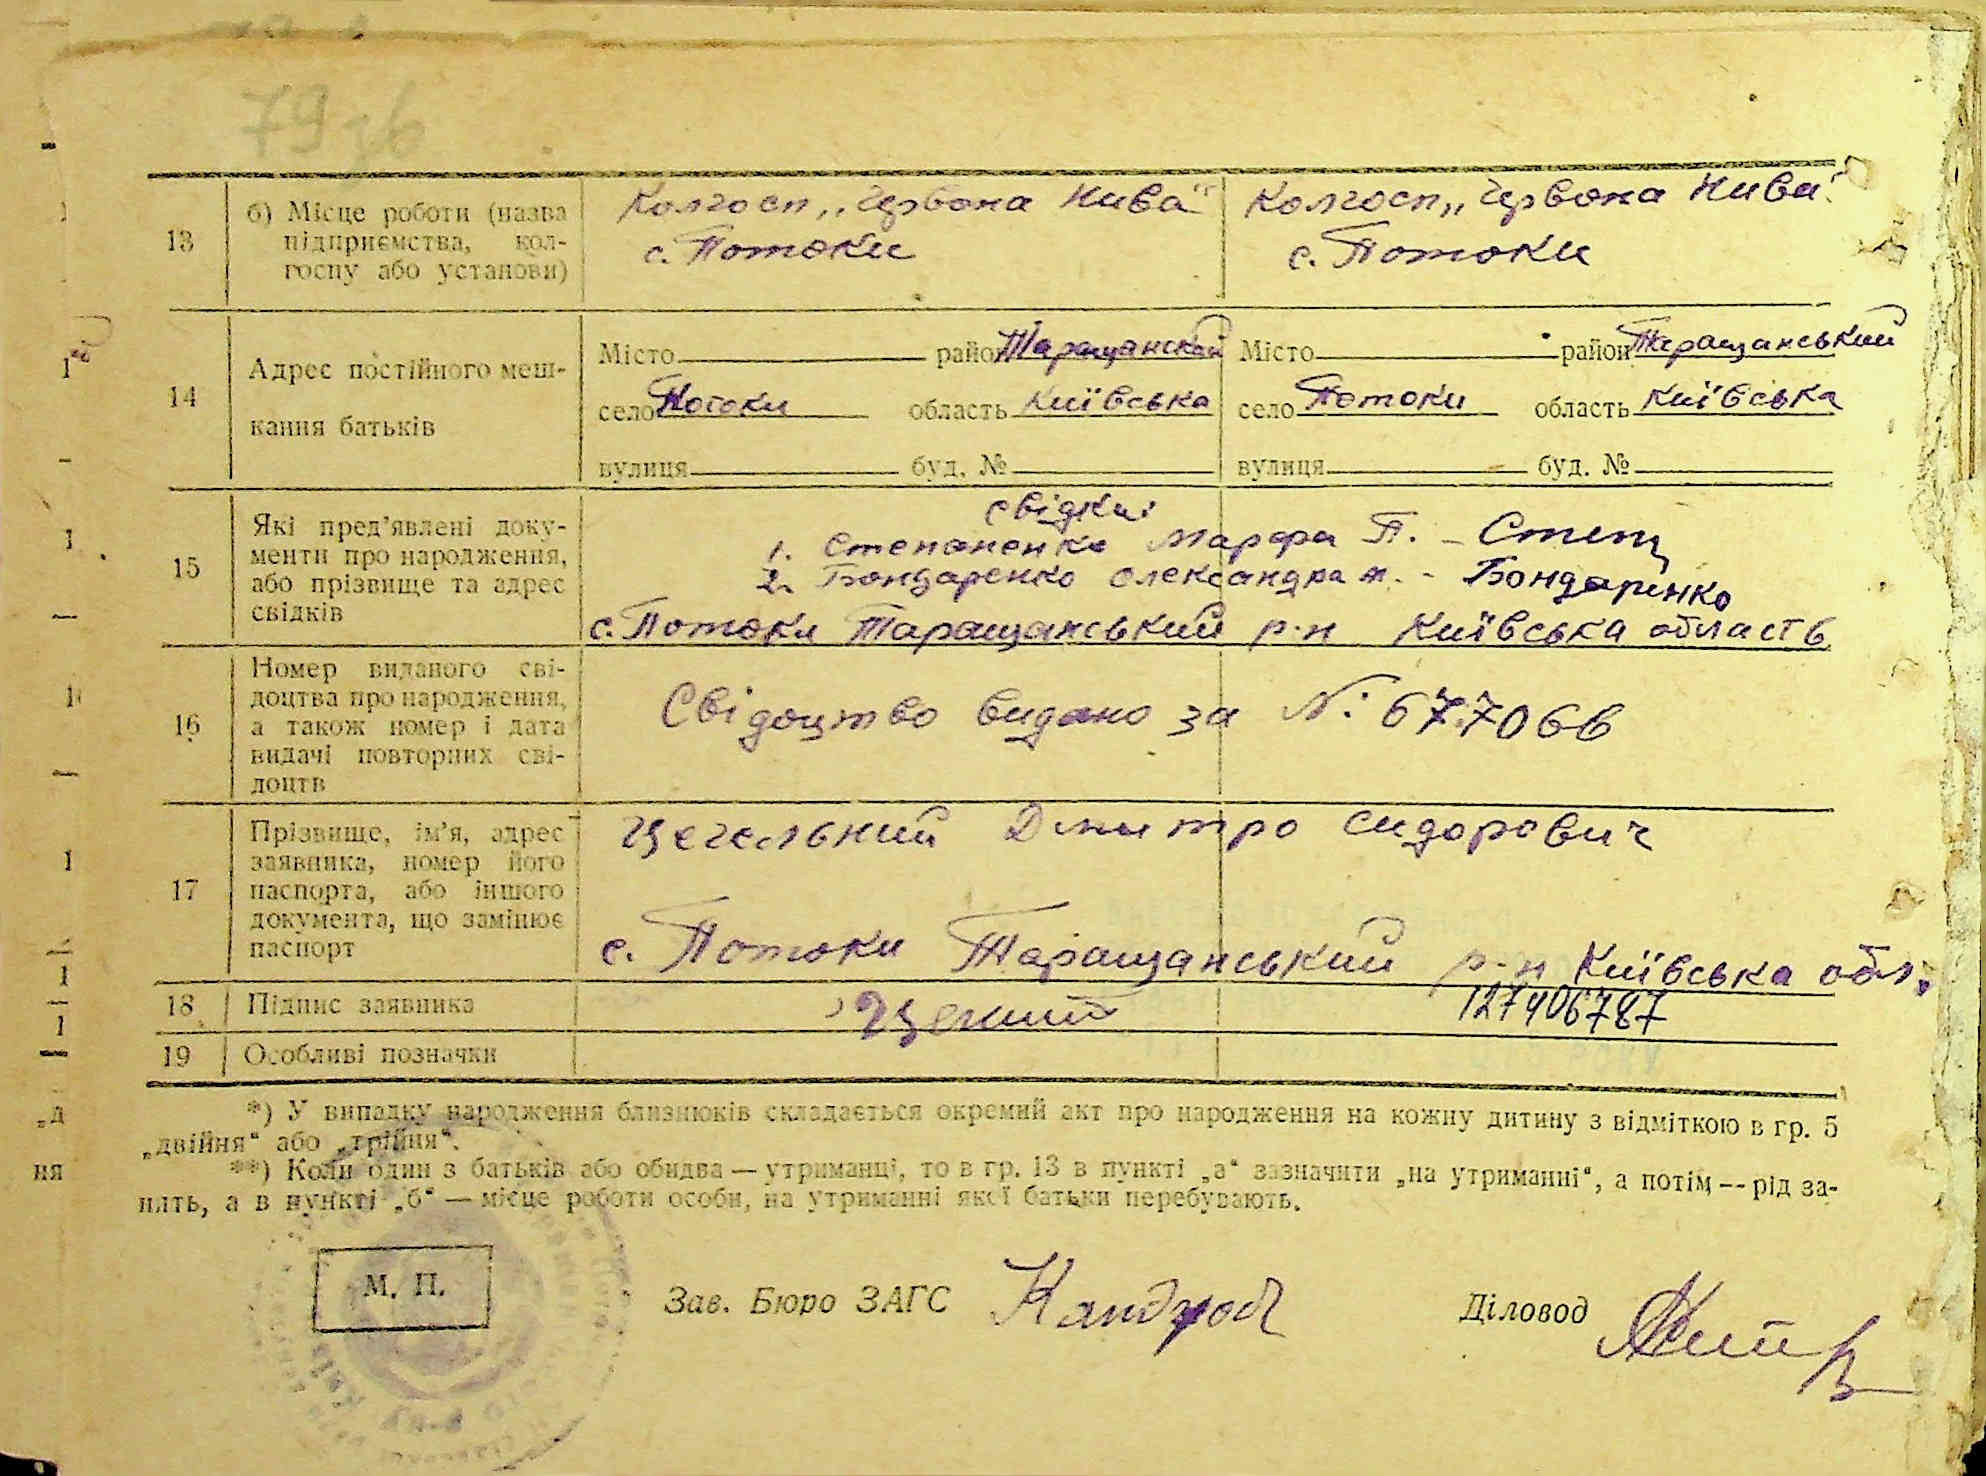 79 зв
13
б) Місце роботи (назва
підприємства, кол-
госпу або установи)
Колгосп „Червона Нива"
с. Потоки
Колгосп „Червона Нива"
с. Потоки
14
Адрес постійного меш-
кання батьків
Місто район Таращанський
село Потоки область Київська
вулиця буд. №
Місто район Таращанський
село Потоки область Київська
вулиця буд. №
15
Які пред'явлені доку-
менти про народження,
або прізвище та адрес
свідків
свідки:
1. Степаненко Марфа П. – Степ
2. Бондаренко Олександра М. – Бондаренко
с. Потоки Таращанський р-н Київська область
16
Номер виданого сві-
доцтва про народження,
а також номер і дата
видачі повторних сві-
доцтв
Свідоцтво видано за №
17
Прізвище, ім'я, адрес
заявника, номер його
паспорта, або іншого
документа, що замінює
паспорт
Цегельний Дмитро Сидорович
с. Потоки Таращанський р-н Київська обл.
18
Підпис заявника
127406787
19
Особливі позначки
*) У випадку народження близнюків складається окремий акт про народження на кожну дитину з відміткою в гр. 5
„двійня" або „трійня".
**) Коли один з батьків або обидва — утриманці, то в гр. 13 в пункті „а" зазначити „на утриманні", а потім — рід за-
нять, а в пункті „б" — місце роботи особи, на утриманні якої батьки перебувають.
М. П.
Зав. Бюро ЗАГС
Діловод